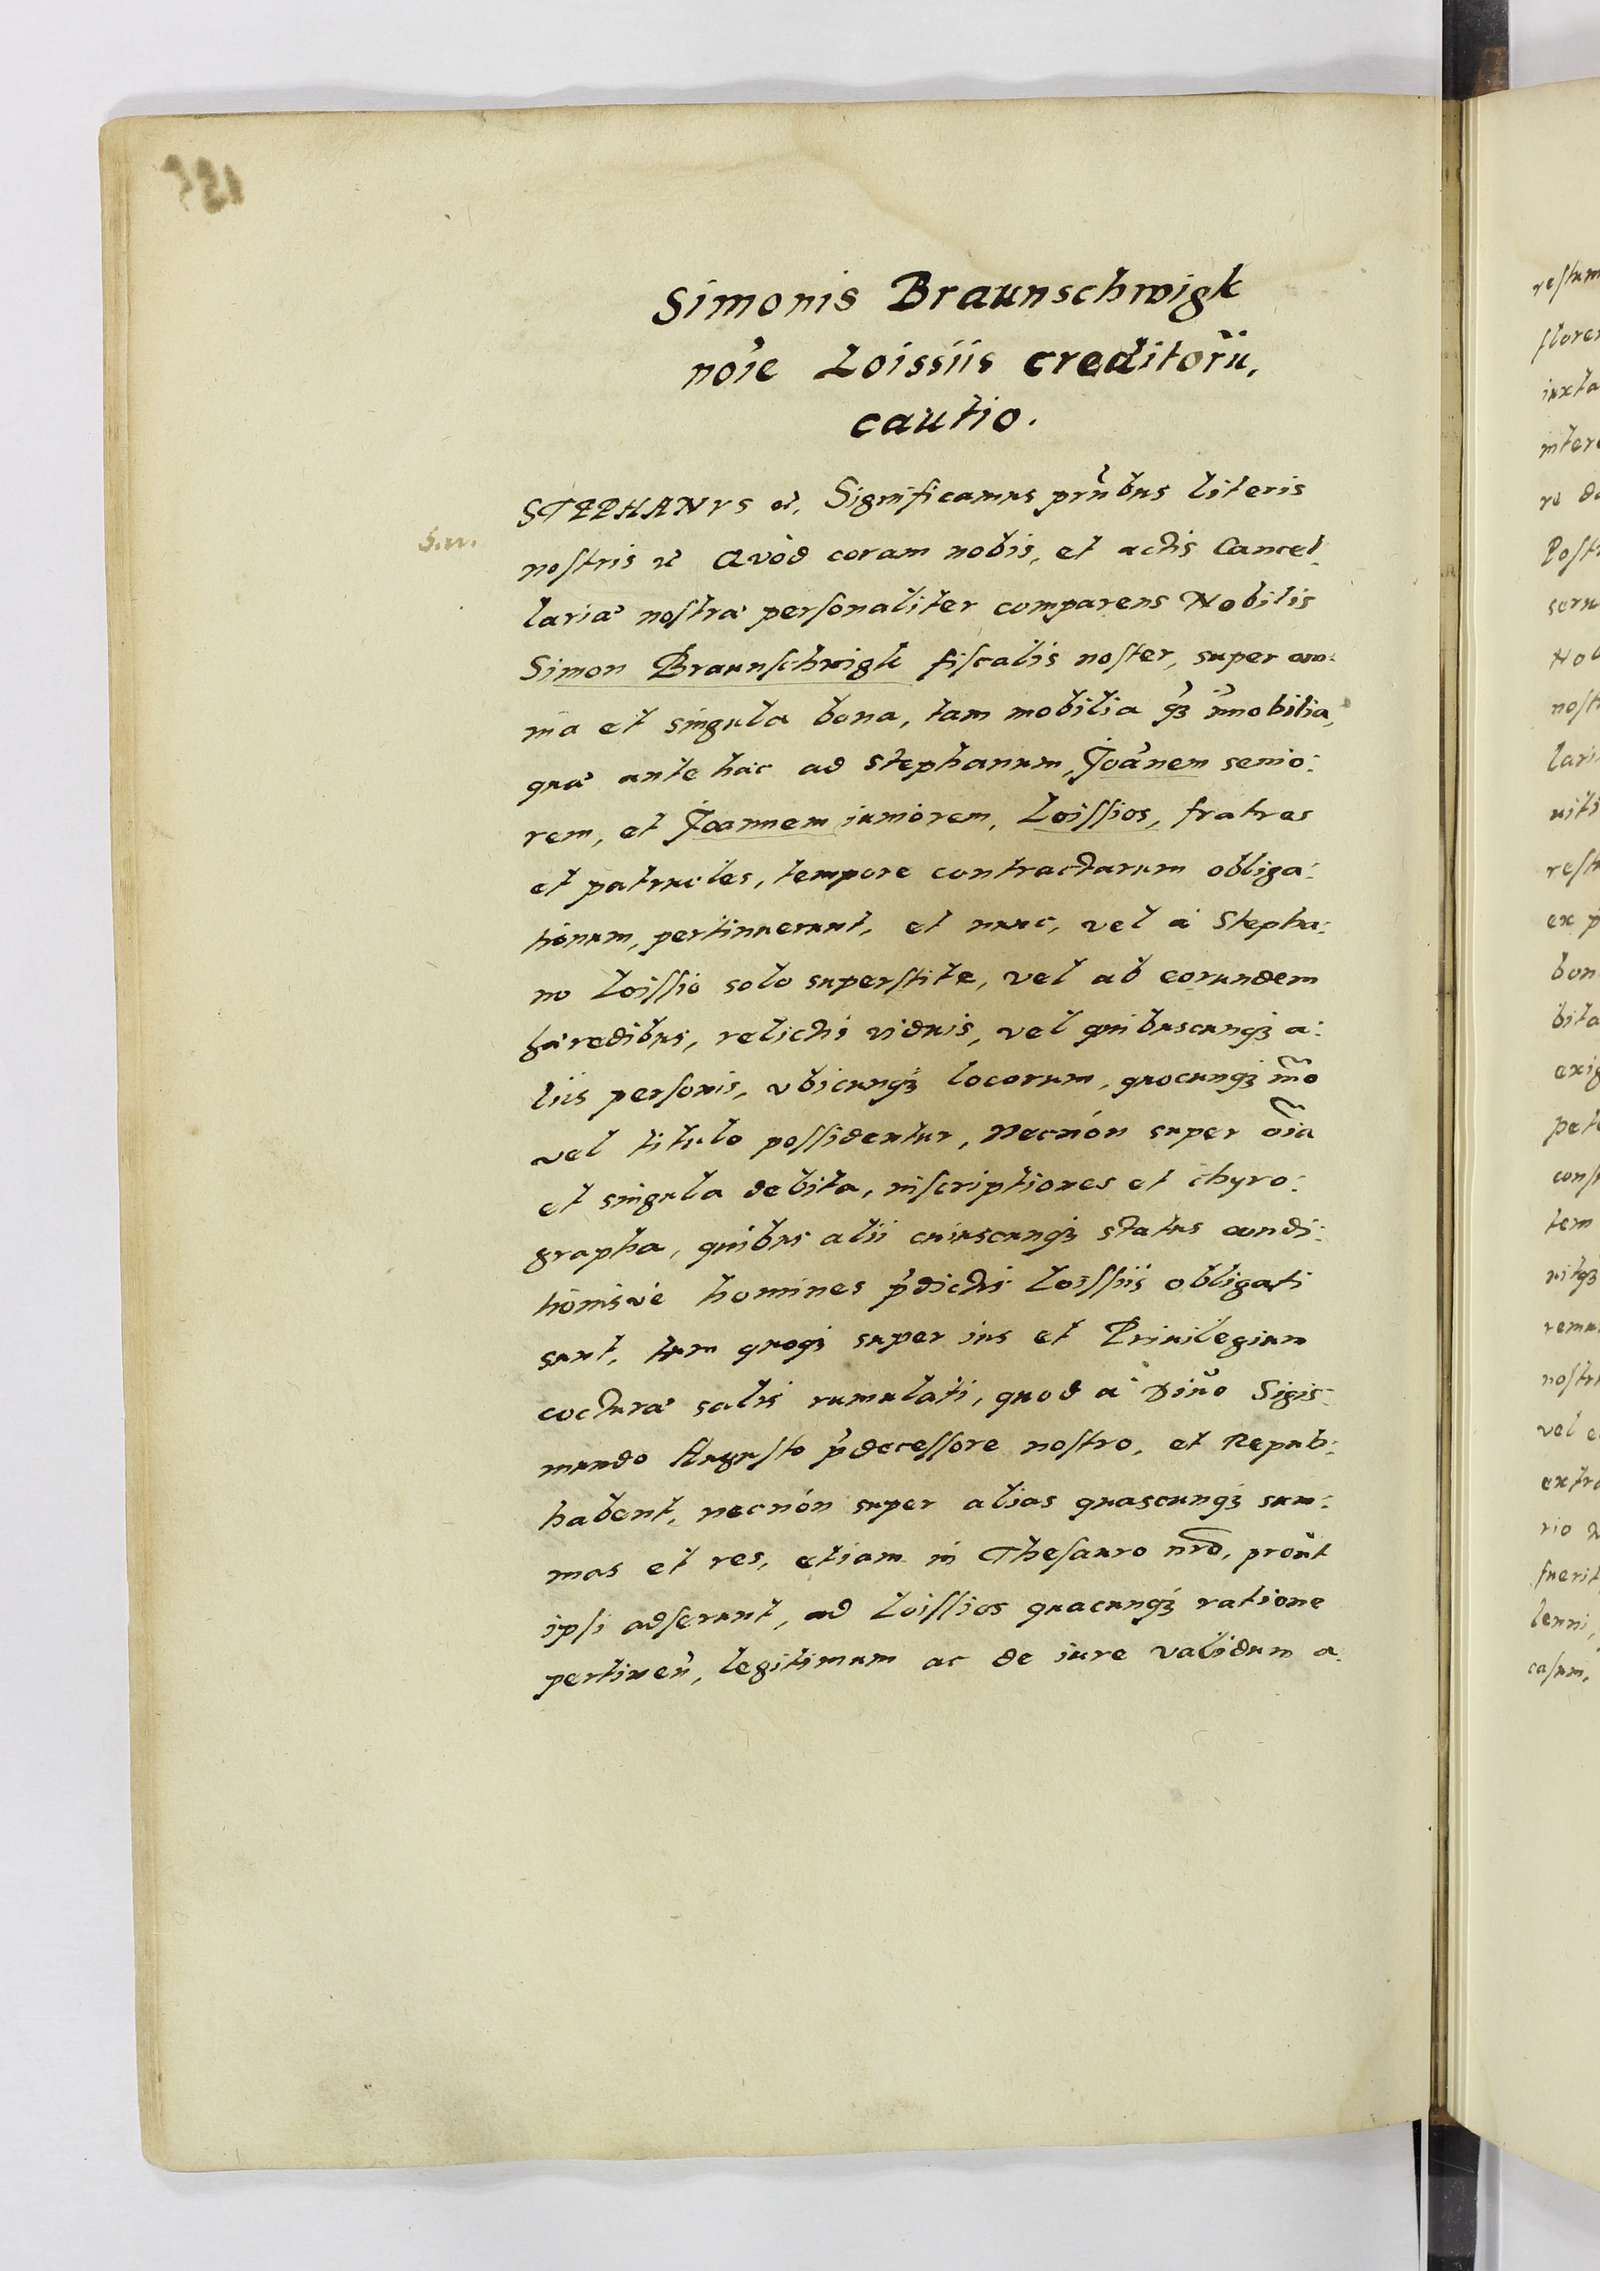 Simonis Braunschwigk
nõie Loissiis creditorũ,
cautio.
STEPHANVS etc, Significamus prñbus literis
nostris etc Qvòd coram nobis, et actis Cancel-
lariæ nostræ personaliter comparens Nobilis
Simon Braunschwigk fiscalis noster, super om:
nia et singula bona, tam mobilia q̃ȝ im̃obilia,
quæ ante hac ad Stephanum, Joãnem senio:
rem, et Joannem iuniorem, Loissios, fratres
et patrueles, tempore contractarum obliga:
tionum, pertinuerunt, et nunc, vel à Stepha:
no Loissio solo superstite, vel ab eorundem
hæredibus, relictis viduis, vel quibuscunqȝ a:
liis personis, vbicunqȝ locorum, quocunqȝ mõo
vel titulo possidentur, Necnón super õia
et singula debita, inscriptiones et chyro:
grapha, quibus alii cuiuscunqȝ status condi:
tionisvè homines p̃dictis Loissiis obligati
sunt, tum quoqȝ super ius et Priuilegium
cocturæ salis cumulati, quod à Diuo Sigis:
mundo Augusto p̃decessore nostro, et Repub:
habent, necnón super alias quascunqȝ sum:
mas et res, etiam in Thesauro nrõ, prout
ipsi adserunt, ad Loissios quacunqȝ ratione
pertineñ, legitimum ac de iure validum a: